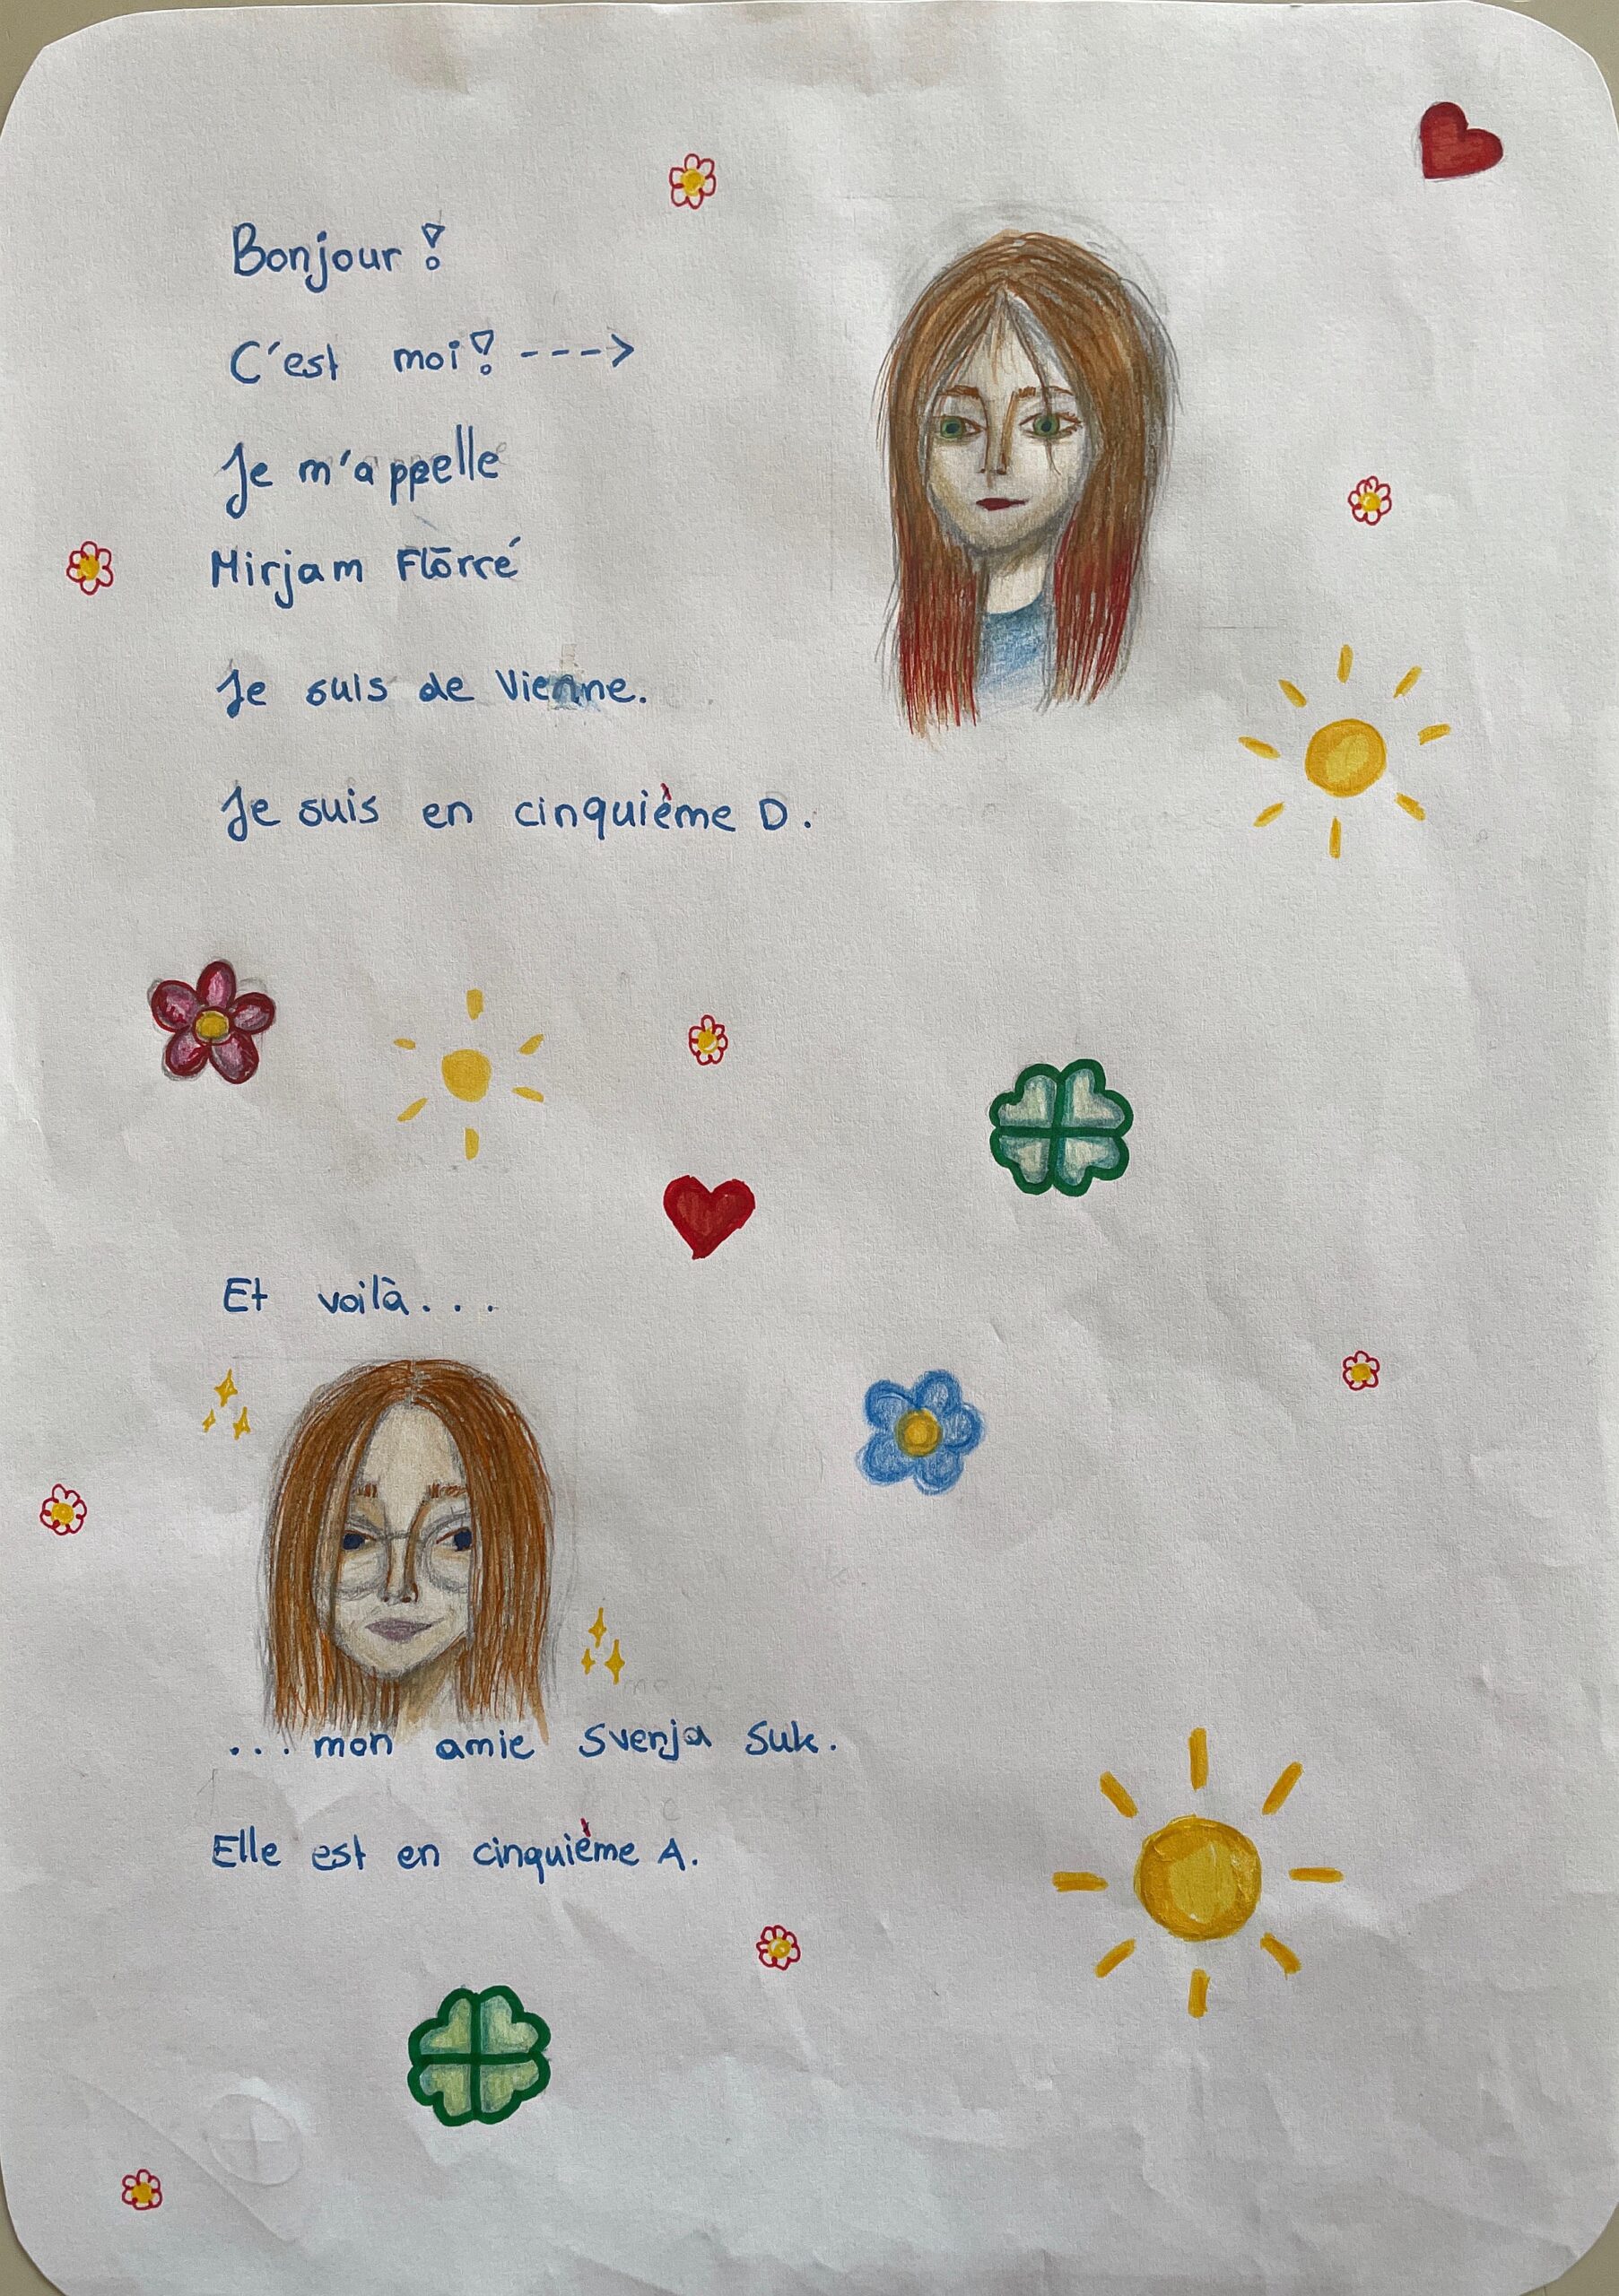 Bonjour !
C'est moi! --->
Je m'appelle
Mirjam Flōrré
Je suis de Vienne.
Je suis en cinquième D.
Et voilà...
...mon amie Svenja Suk.
Elle est en cinquième A.